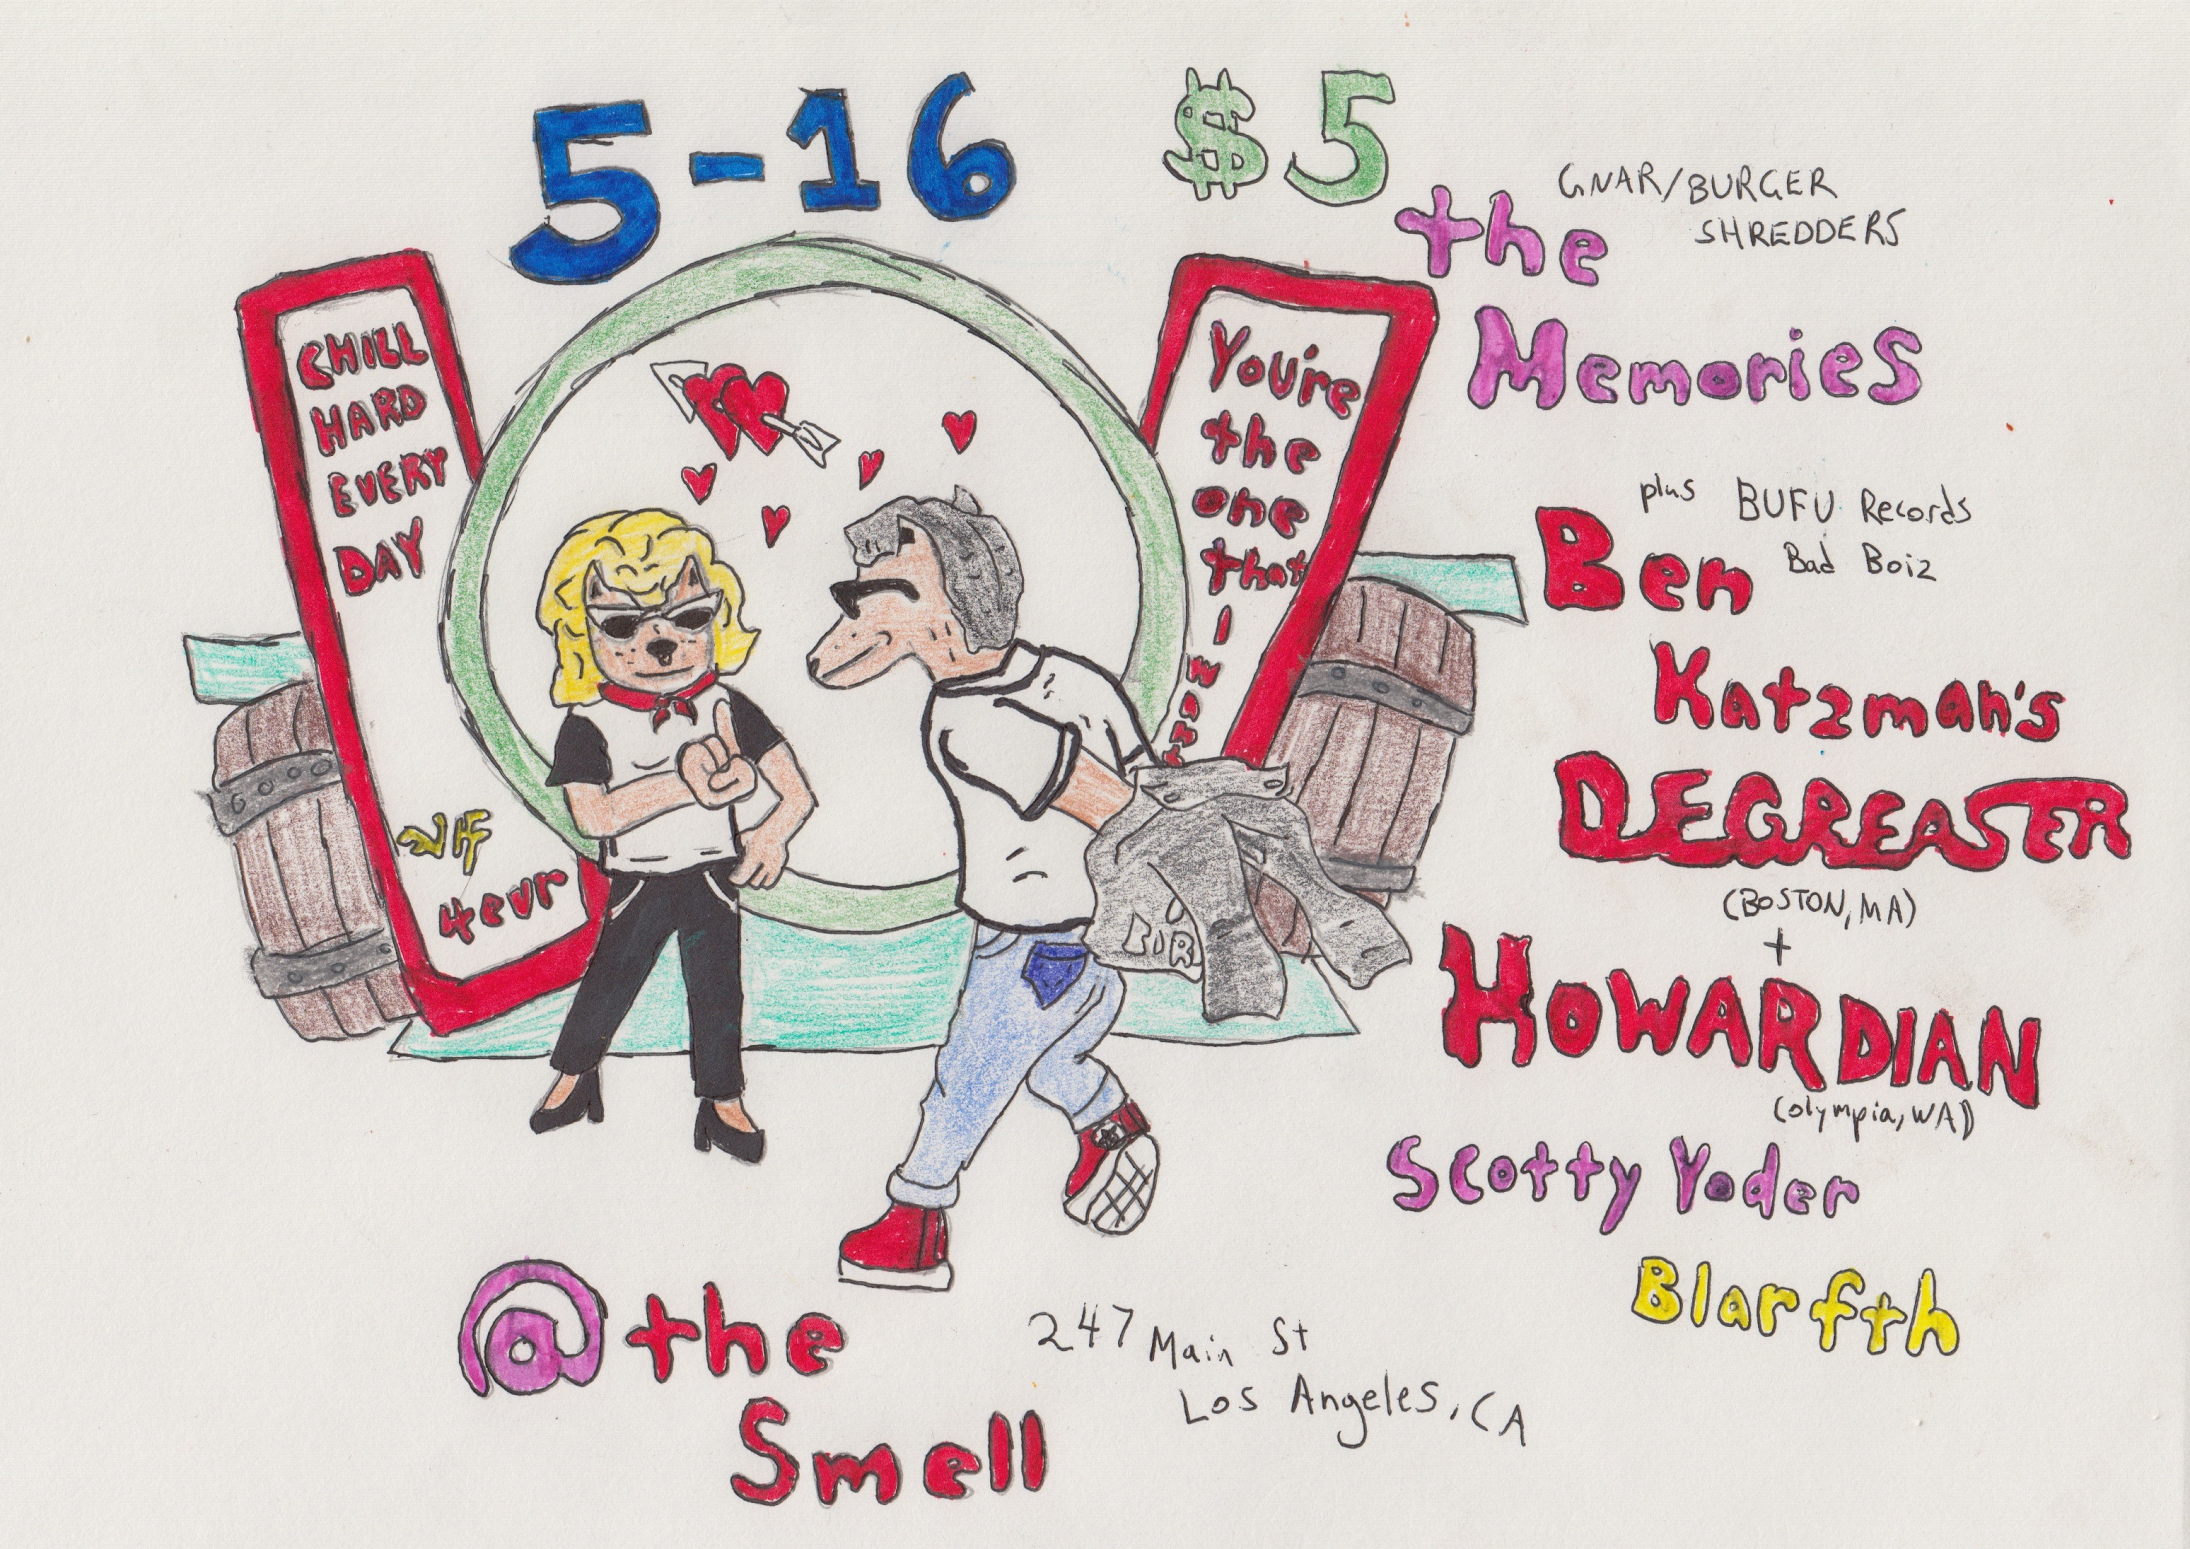 5-16
$5
GNAR/BURGER
SHREDDERS
the
Memories
CHILL
HARD
EVERY
DAY
4evr
You're
the
one
that
I
want
plus BUFU Records
Bad Boiz
Ben
Katzman's
DEGREASER
(BOSTON, MA)
+
HOWARDIAN
(Olympia, WA)
Scotty Yoder
Blarfth
@ the
Smell
247 Main St
Los Angeles, CA